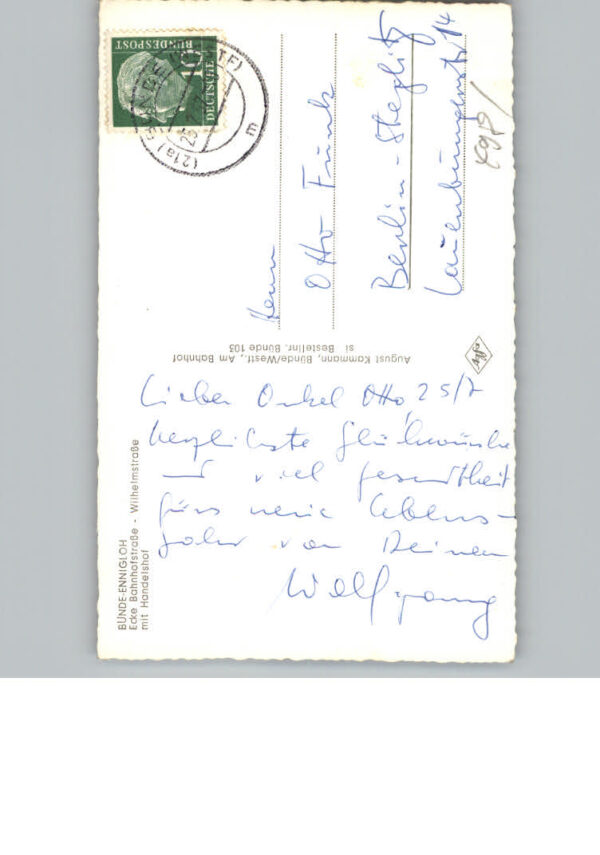 Lieber Onkel Otto, 25/7
herzlichste Glückwünsche
und viel Gesundheit
fürs neue Lebens-
jahr von Deinem
Wolfgang
Herrn
Otto Funk
Berlin-Steglitz
Lauenburgerstr. 14
BÜNDE-ENNIGLOH
Ecke Bahnhofstraße - Wilhelmstraße
mit Handelshof
August Kammann, Bünde/Westf., Am Bahnhof
si Bestellnr. Bünde 105
Agfa
DEUTSCHE
BUNDESPOST
10
(21a)
m